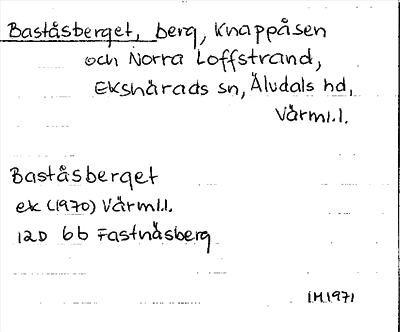 Baståsberget, berg, Knappåsen
och Norra Loffstrand,
Ekshärads sn, Älvdals hd,
Värml.l.
Baståsberget
ek (1970) Värml.l.
12D 6b Fastnäsberg
I.H.1971